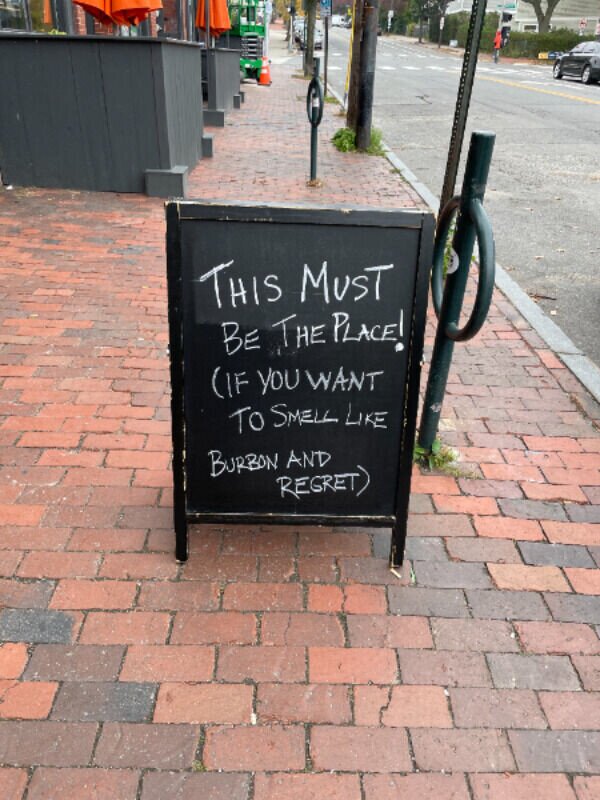 THIS MUST
BE THE PLACE!
(IF YOU WANT
TO SMELL LIKE
BURBON AND
REGRET)